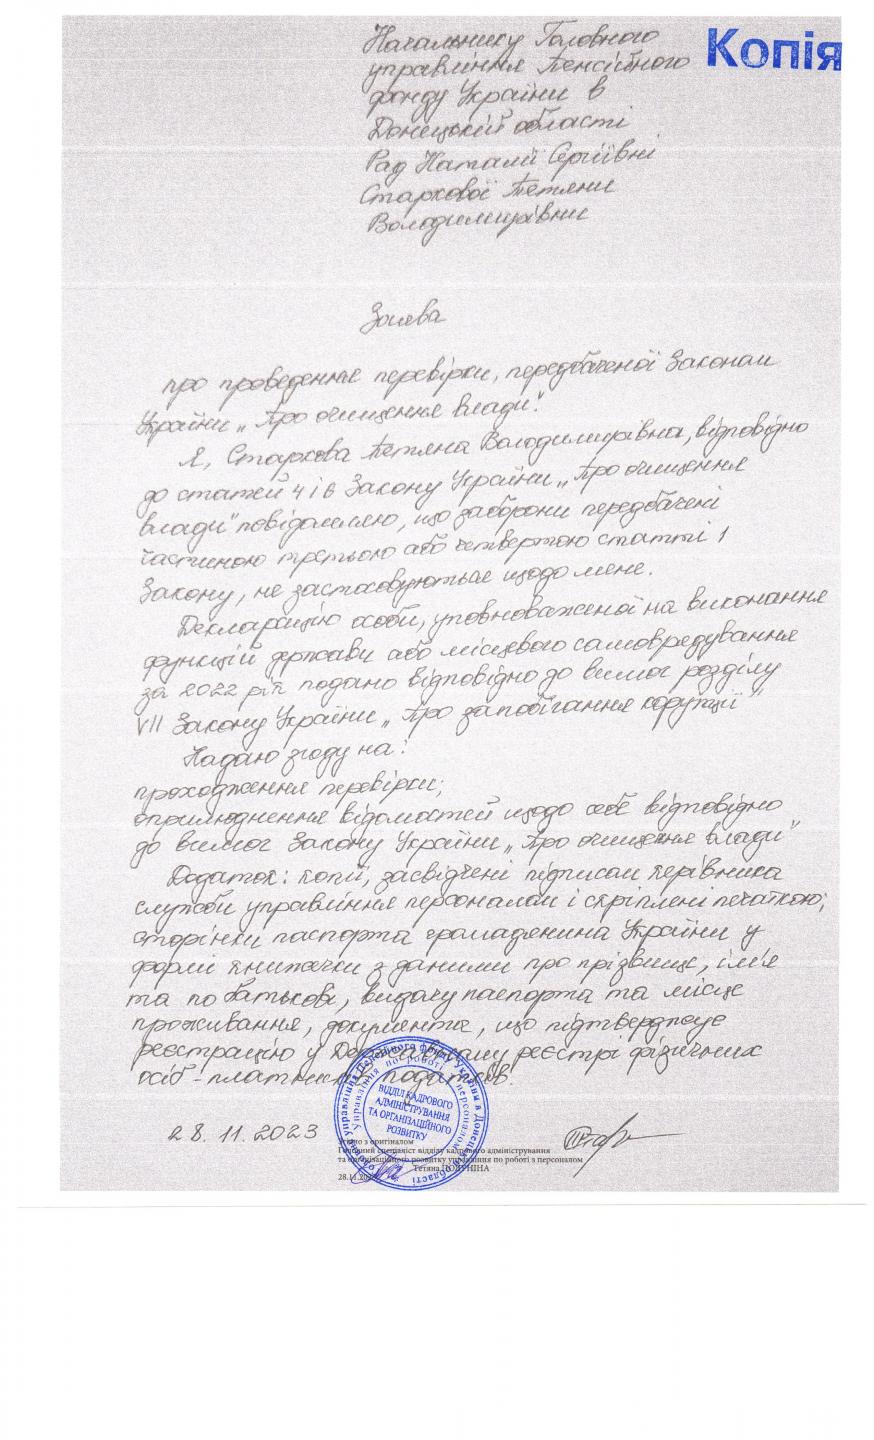 Копія
Начальнику Головного
управління Пенсійного
фонду України в
Донецькій області
Рад Наталії Сергіївні
Старкової Тетяни
Володимирівни
Заява
про проведення перевірки, передбаченої Законом
України „Про очищення влади".
Я, Старкова Тетяна Володимирівна, відповідно
до статей 4 і 6 Закону України „Про очищення
влади" повідомляю, що заборони передбачені
частиною третьою або четвертою статті 1
Закону, не застосовуються щодо мене.
Декларацію особи, уповноваженої на виконання
функцій держави або місцевого самоврядування
за 2022 рік подано відповідно до вимог розділу
VII Закону України „Про запобігання корупції"
Надаю згоду на:
проходження перевірки;
оприлюднення відомостей щодо себе відповідно
до вимог Закону України „Про очищення влади"
Додаток: копії, засвідчені підписом керівника
служби управління персоналом і скріплені печаткою;
сторінки паспорта громадянина України у
формі книжечки з даними про прізвище, ім'я
та по батькові, видачу паспорта та місце
проживання, документа, що підтверджує
реєстрацію у Державному реєстрі фізичних
осіб - платників податків.
28.11.2023
ВІДДІЛ КАДРОВОГО
АДМІНІСТРУВАННЯ
ТА ОРГАНІЗАЦІЙНОГО
РОЗВИТКУ
Згідно з оригіналом
Головний спеціаліст відділу кадрового адміністрування
та організаційного розвитку управління по роботі з персоналом
Тетяна
28.11.2023